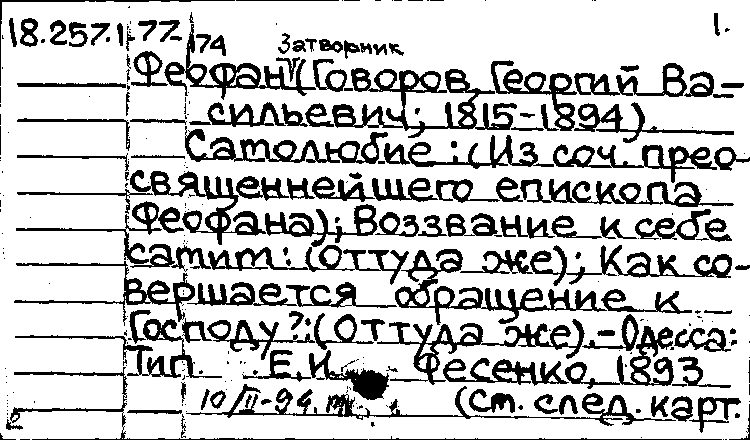 18.257.1-77 1.
174 Затворник
Феофан (Говоров, Георгий Ва-
сильевич; 1815-1894).
Сатолюбие : (Из соч. прео-
священнейшего епископа
Феофана); Воззвание к себе
сатит : (Оттуда же); Как со-
вершается обращение к
Господу? : (Оттуда же). - Одесса:
Тип. Е.И. Фесенко, 1893
10/II-94. т
(Ст. след. карт.
2